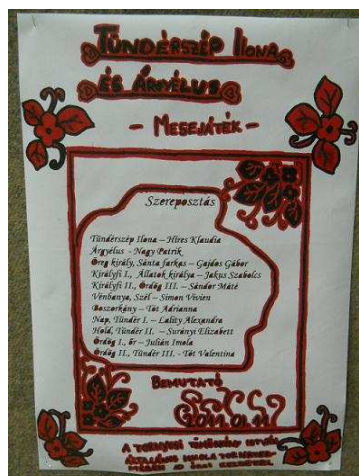 Tündérszép Ilona
és Árgyélus
- Mesejáték -
Szereposztás
Tündérszép Ilona – Híres Klaudia
Árgyélus - Nagy Patrik
Öreg király, Sánta farkas – Gajdos Gábor
Királyfi I., Állatok királya – Jakus Szabolcs
Királyfi II., Ördög III. – Sándor Máté
Vénbanya, Szél – Simon Vivien
Boszorkány – Tót Adrianna
Nap, Tündér I. – Lality Alexandra
Hold, Tündér II. – Surányi Elizabett
Ördög I., őr – Julián Imola
Ördög II., Tündér III. - Tót Valentina
Bemutató
2011.01.
A Tornyosi Tömörkény István
Általános Iskola